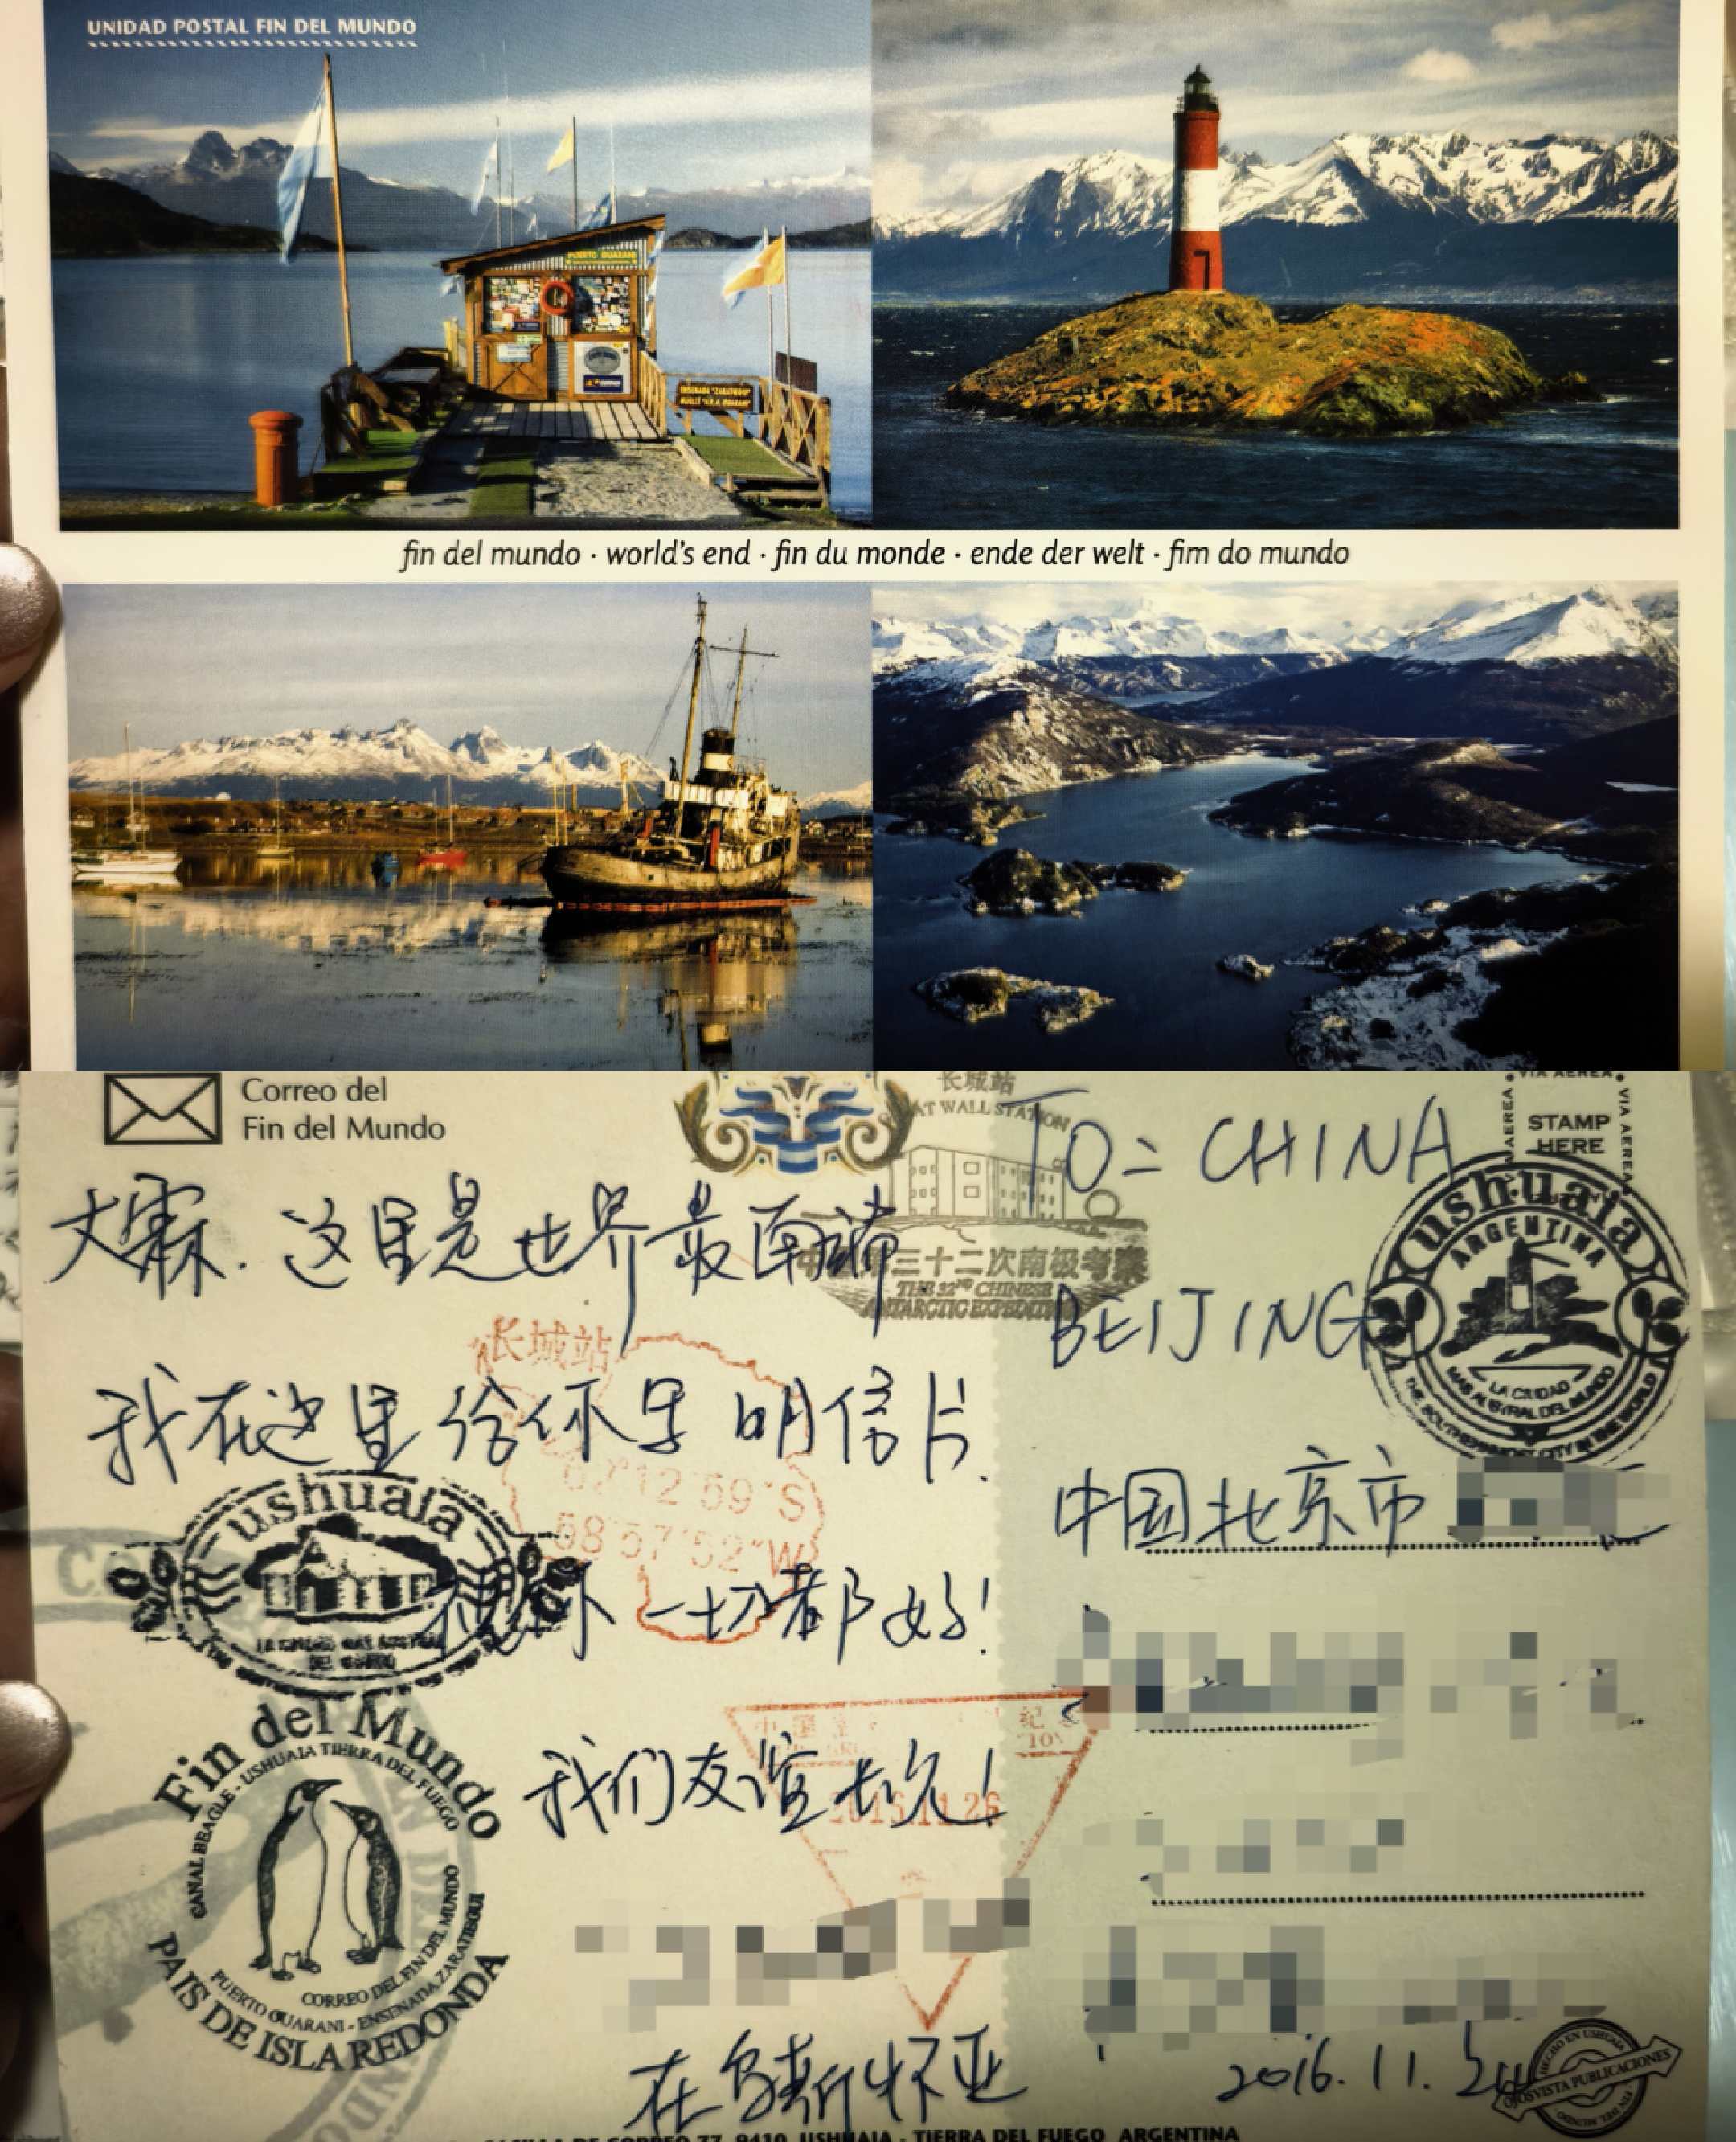 UNIDAD POSTAL FIN DEL MUNDO
PUERTO GUARANI
ENSENADA "ZARATIEGUI"
MUELLE "A.R.A. GUARANI"
fin del mundo · world's end · fin du monde · ende der welt · fim do mundo
Correo del
Fin del Mundo
长城站
AT WALL STATION
三十二次南极考察
THE 32ND CHINESE
ANTARCTIC EXPEDITI
VIA AEREA
VIA AEREA
STAMP
HERE
TO: CHINA
BEIJING
中国北京市
ushuaia
ARGENTINA
LA CIUDAD
MAS AUSTRAL DEL MUNDO
THE SOUTHERNMOST CITY IN THE WORLD
大霖.这里是世界最南端
我在这里给你写明信片.
祝你一切都好!
我们友谊长久!
长城站
62°12'59"S
58°57'52"W
ushuaia
LA CIUDAD MAS AUSTRAL
DEL MUNDO
2016.11.26
Fin del Mundo
CANAL BEAGLE - USHUAIA TIERRA DEL FUEGO
CORREO DEL FIN DEL MUNDO
PUERTO GUARANI - ENSENADA ZARATIEGUI
PAIS DE ISLA REDONDA
在乌斯怀亚
2016.11.24
HECHO EN USHUAIA
OJOSVISTA PUBLICACIONES
FIN DEL MUNDO
CASILLA DE CORREO 77, 9410, USHUAIA - TIERRA DEL FUEGO ARGENTINA